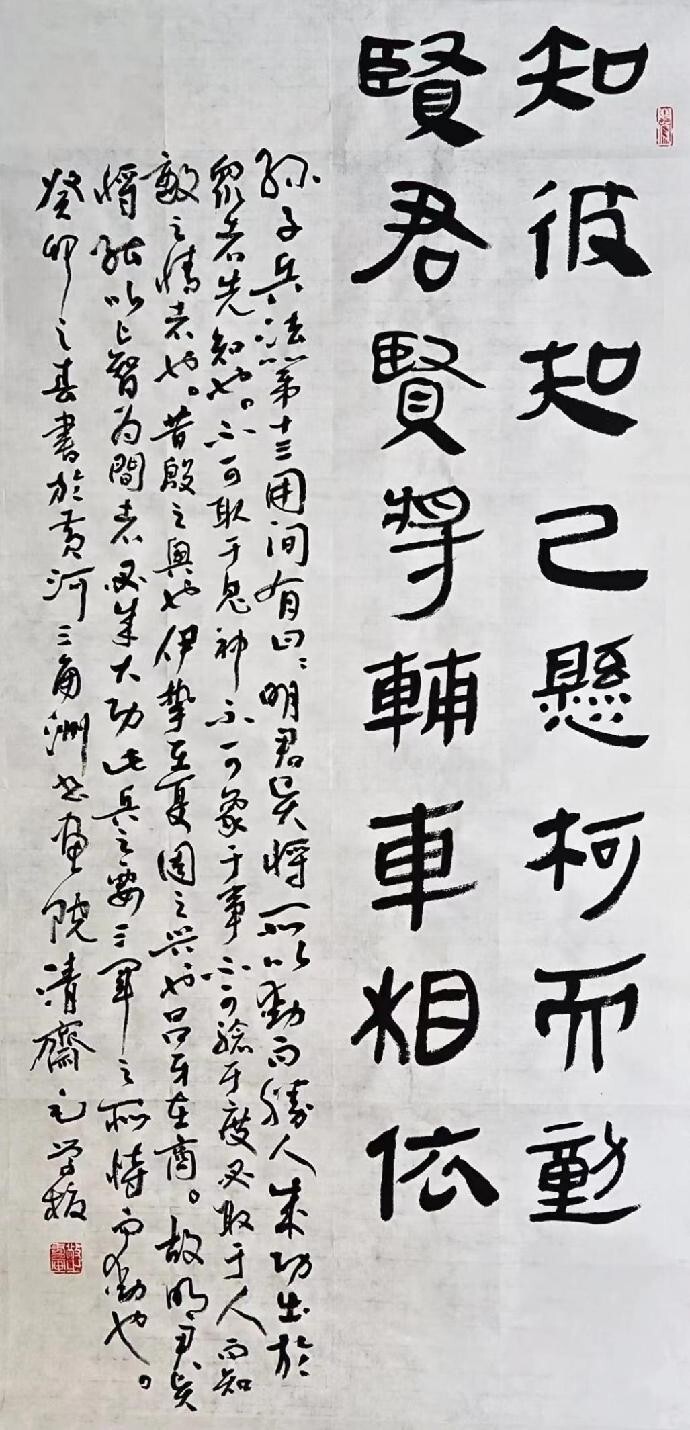 知彼知己懸柯而動
賢君賢將輔車相依
孫子兵法第十三用间有曰：明君贤将所以動而勝人成功出於
眾者先知也。不可取于鬼神不可象于事不可驗于度必取于人而知
敵之情者也。昔殷之興也伊摯在夏周之兴也吕牙在商。故明君贤
將能以上智为間者必成大功此兵之要三軍之所恃而動也。
癸卯之春書於黄河三角洲书画院清齋